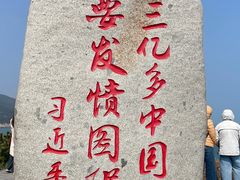 三亿多中国
要发愤图
习近平